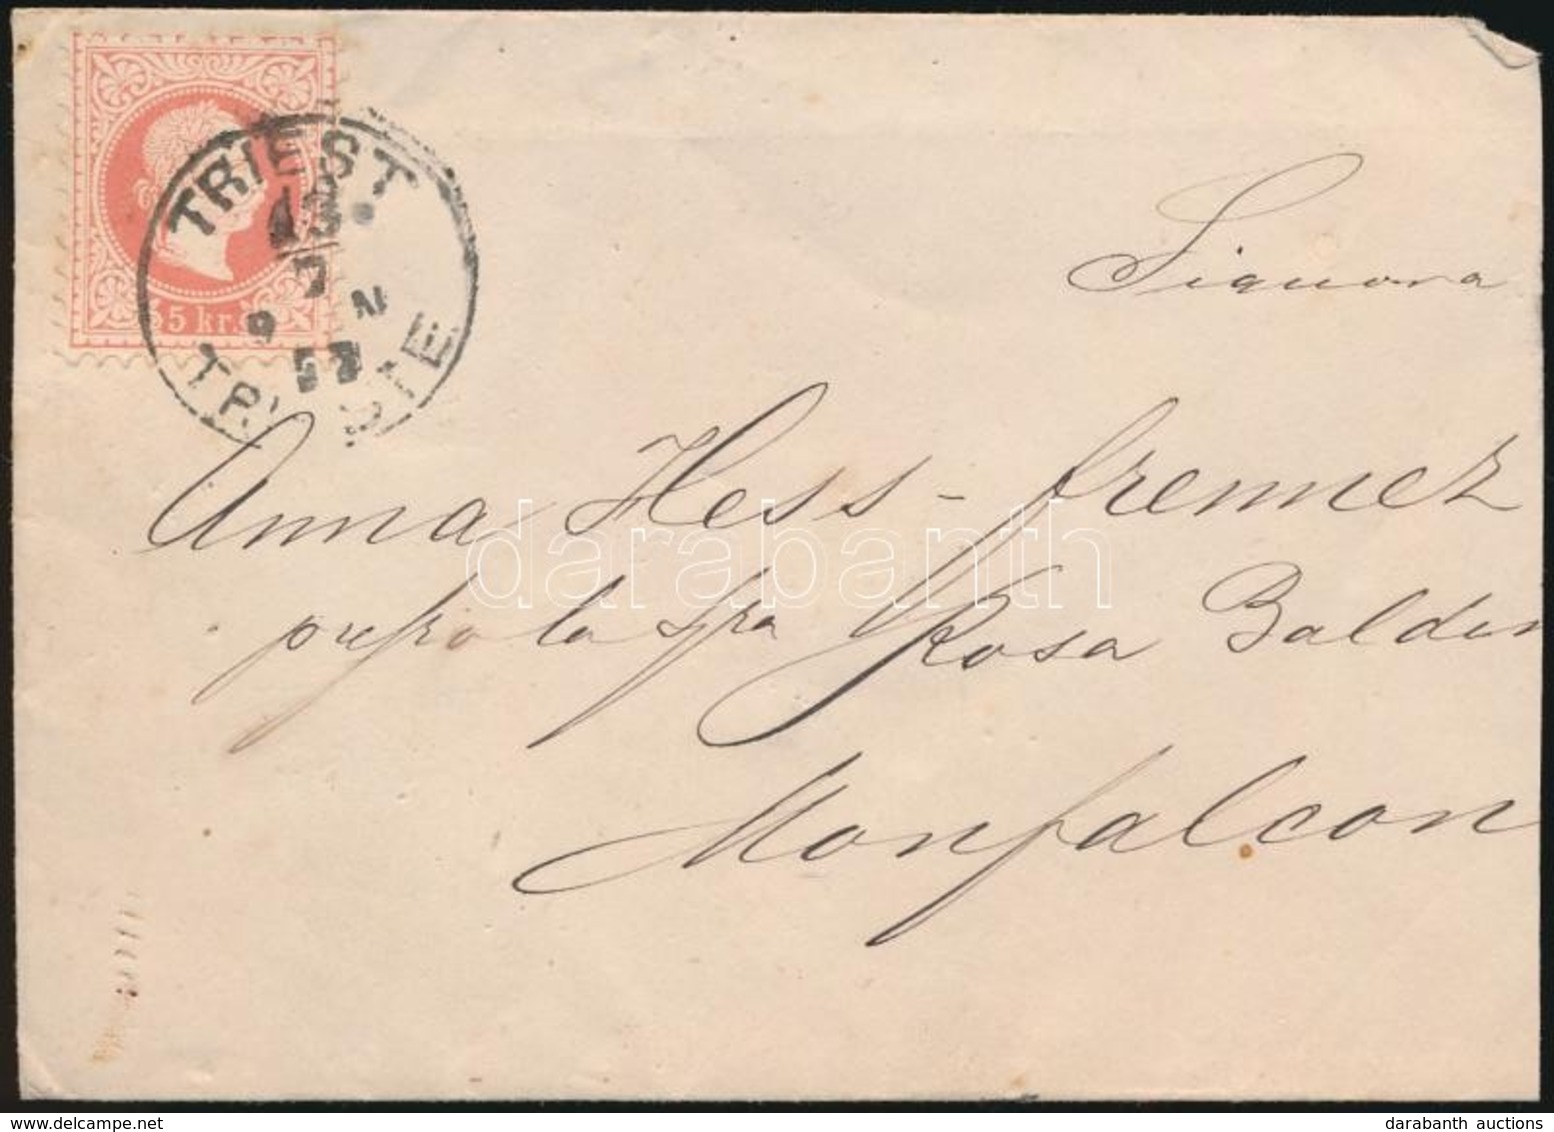 TRIEST
13
7
9 N
TRIESTE
5 kr.
Signora
Anna Hess - Frennez
presso la Sgra Rosa Balden
Monfalcon
darabanth
darabanth auctions